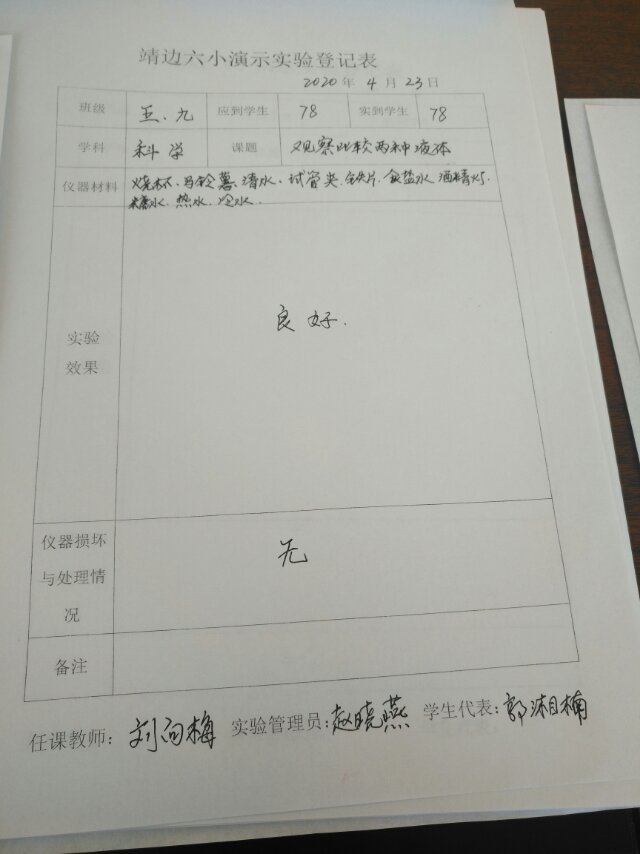 靖边六小演示实验登记表
2020年4月23日
班级 五.九 应到学生 78 实到学生 78
学科 科学 课题 观察比较两种液体
仪器材料 烧杯.马铃薯.清水.试管夹.铁片.食盐水.酒精灯.
糖水.热水.冷水.
实验
效果
良好.
仪器损坏
与处理情
况
无
备注
任课教师：刘向梅 实验管理员：赵晓燕 学生代表：郭湘楠